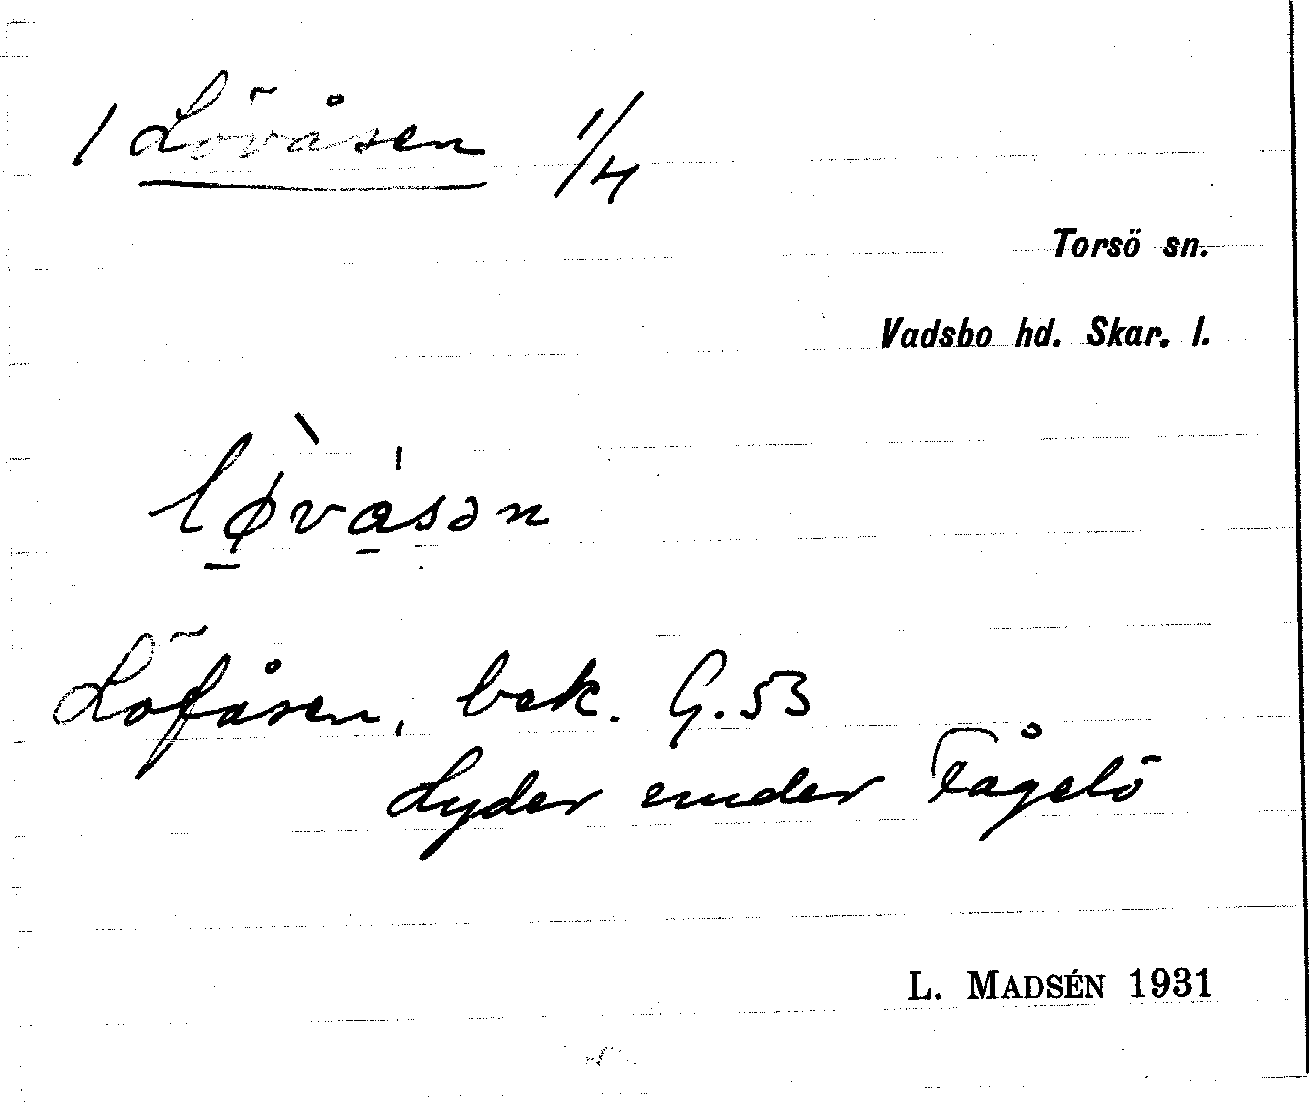 1 Lövåsen 1/4
Torsö sn.
Vadsbo hd. Skar. l.
lø̠̀va̠ˈsən
Löfåsen, bek. G. 53
Lyder under Fågelö
L. MADSÉN 1931